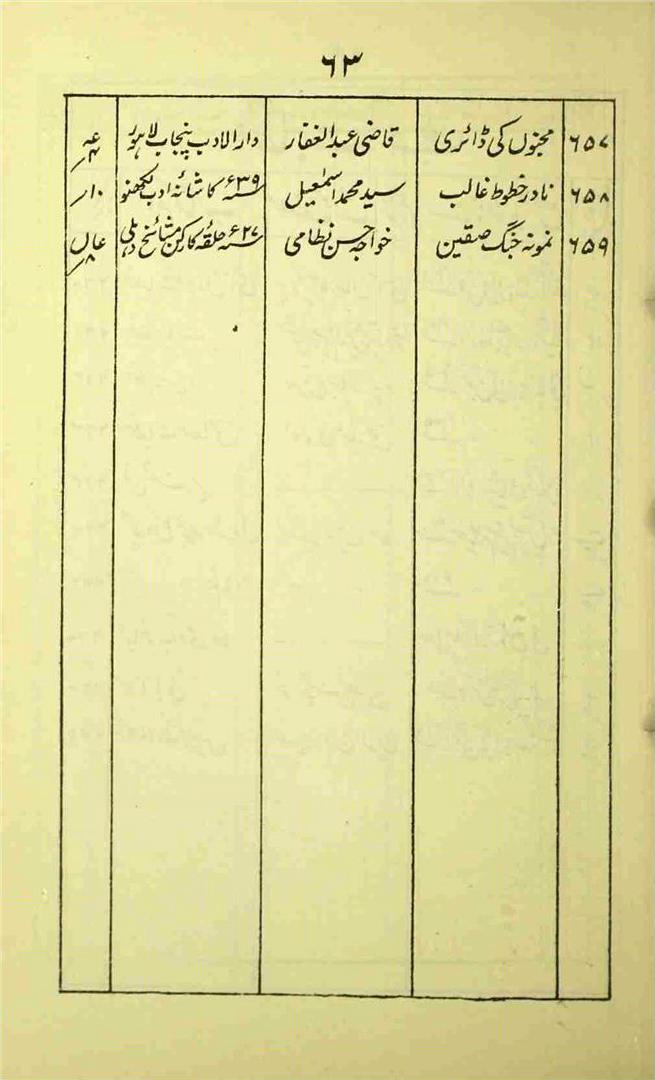 ۶۳
۶۵۷ مجنوں کی ڈائری قاضی عبدالغفار دارالادب پنجاب لاہور
۶۵۸ نادر خطوط غالب سید محمد اسمٰعیل ۳۹ء کاشانہ ادب لکھنو ۱۰ر
۶۵۹ نمونہ جنگ صفین خواجہ حسن نظامی ۲۷ء حلقہ کارکن مشائخ دہلی